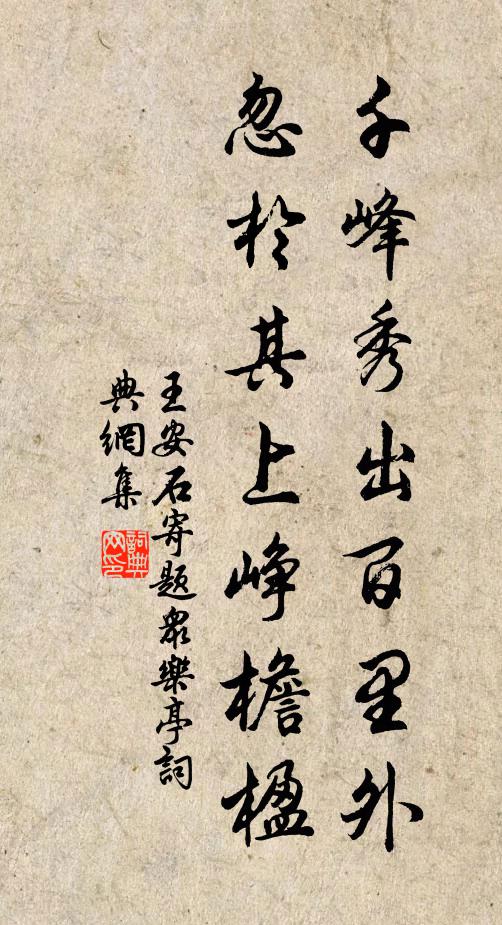 千峰秀出百里外
忽於其上峥檐楹
王安石寄题眾樂亭詞
典網集
詞典網印